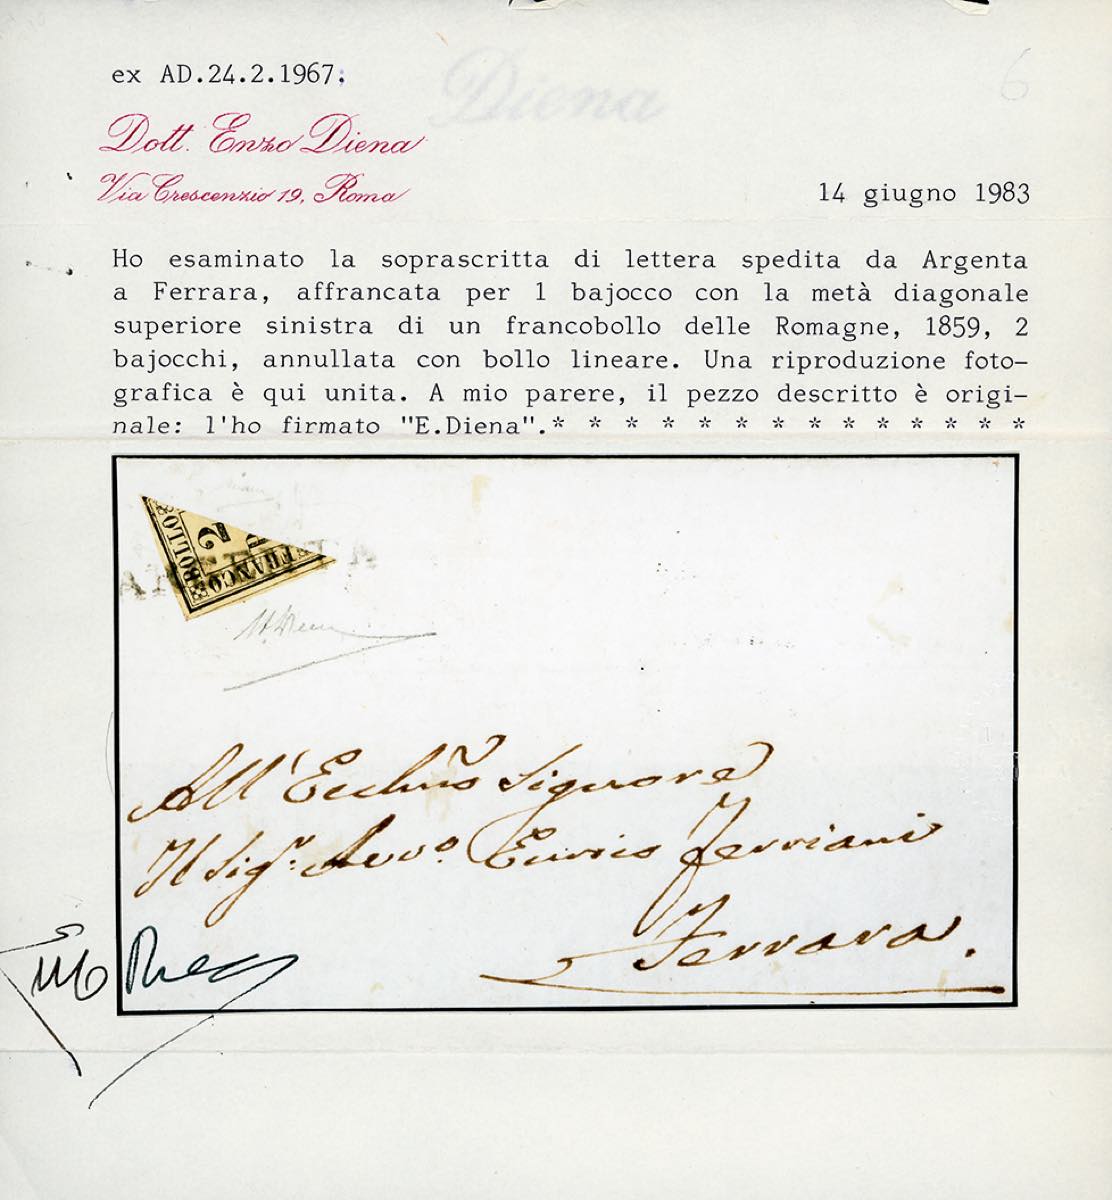 Diena
ex AD.24.2.1967.
6
Dott. Enzo Diena
Via Crescenzio 19, Roma
14 giugno 1983
Ho esaminato la soprascritta di lettera spedita da Argenta
a Ferrara, affrancata per 1 bajocco con la metà diagonale
superiore sinistra di un francobollo delle Romagne, 1859, 2
bajocchi, annullata con bollo lineare. Una riproduzione foto-
grafica è qui unita. A mio parere, il pezzo descritto è origi-
nale: l'ho firmato "E.Diena".* * * * * * * * * * * * * *
BOLLO
2
FRANCO
All' Signore
Il Sig.r Avv.o Ferriani
Ferrara.